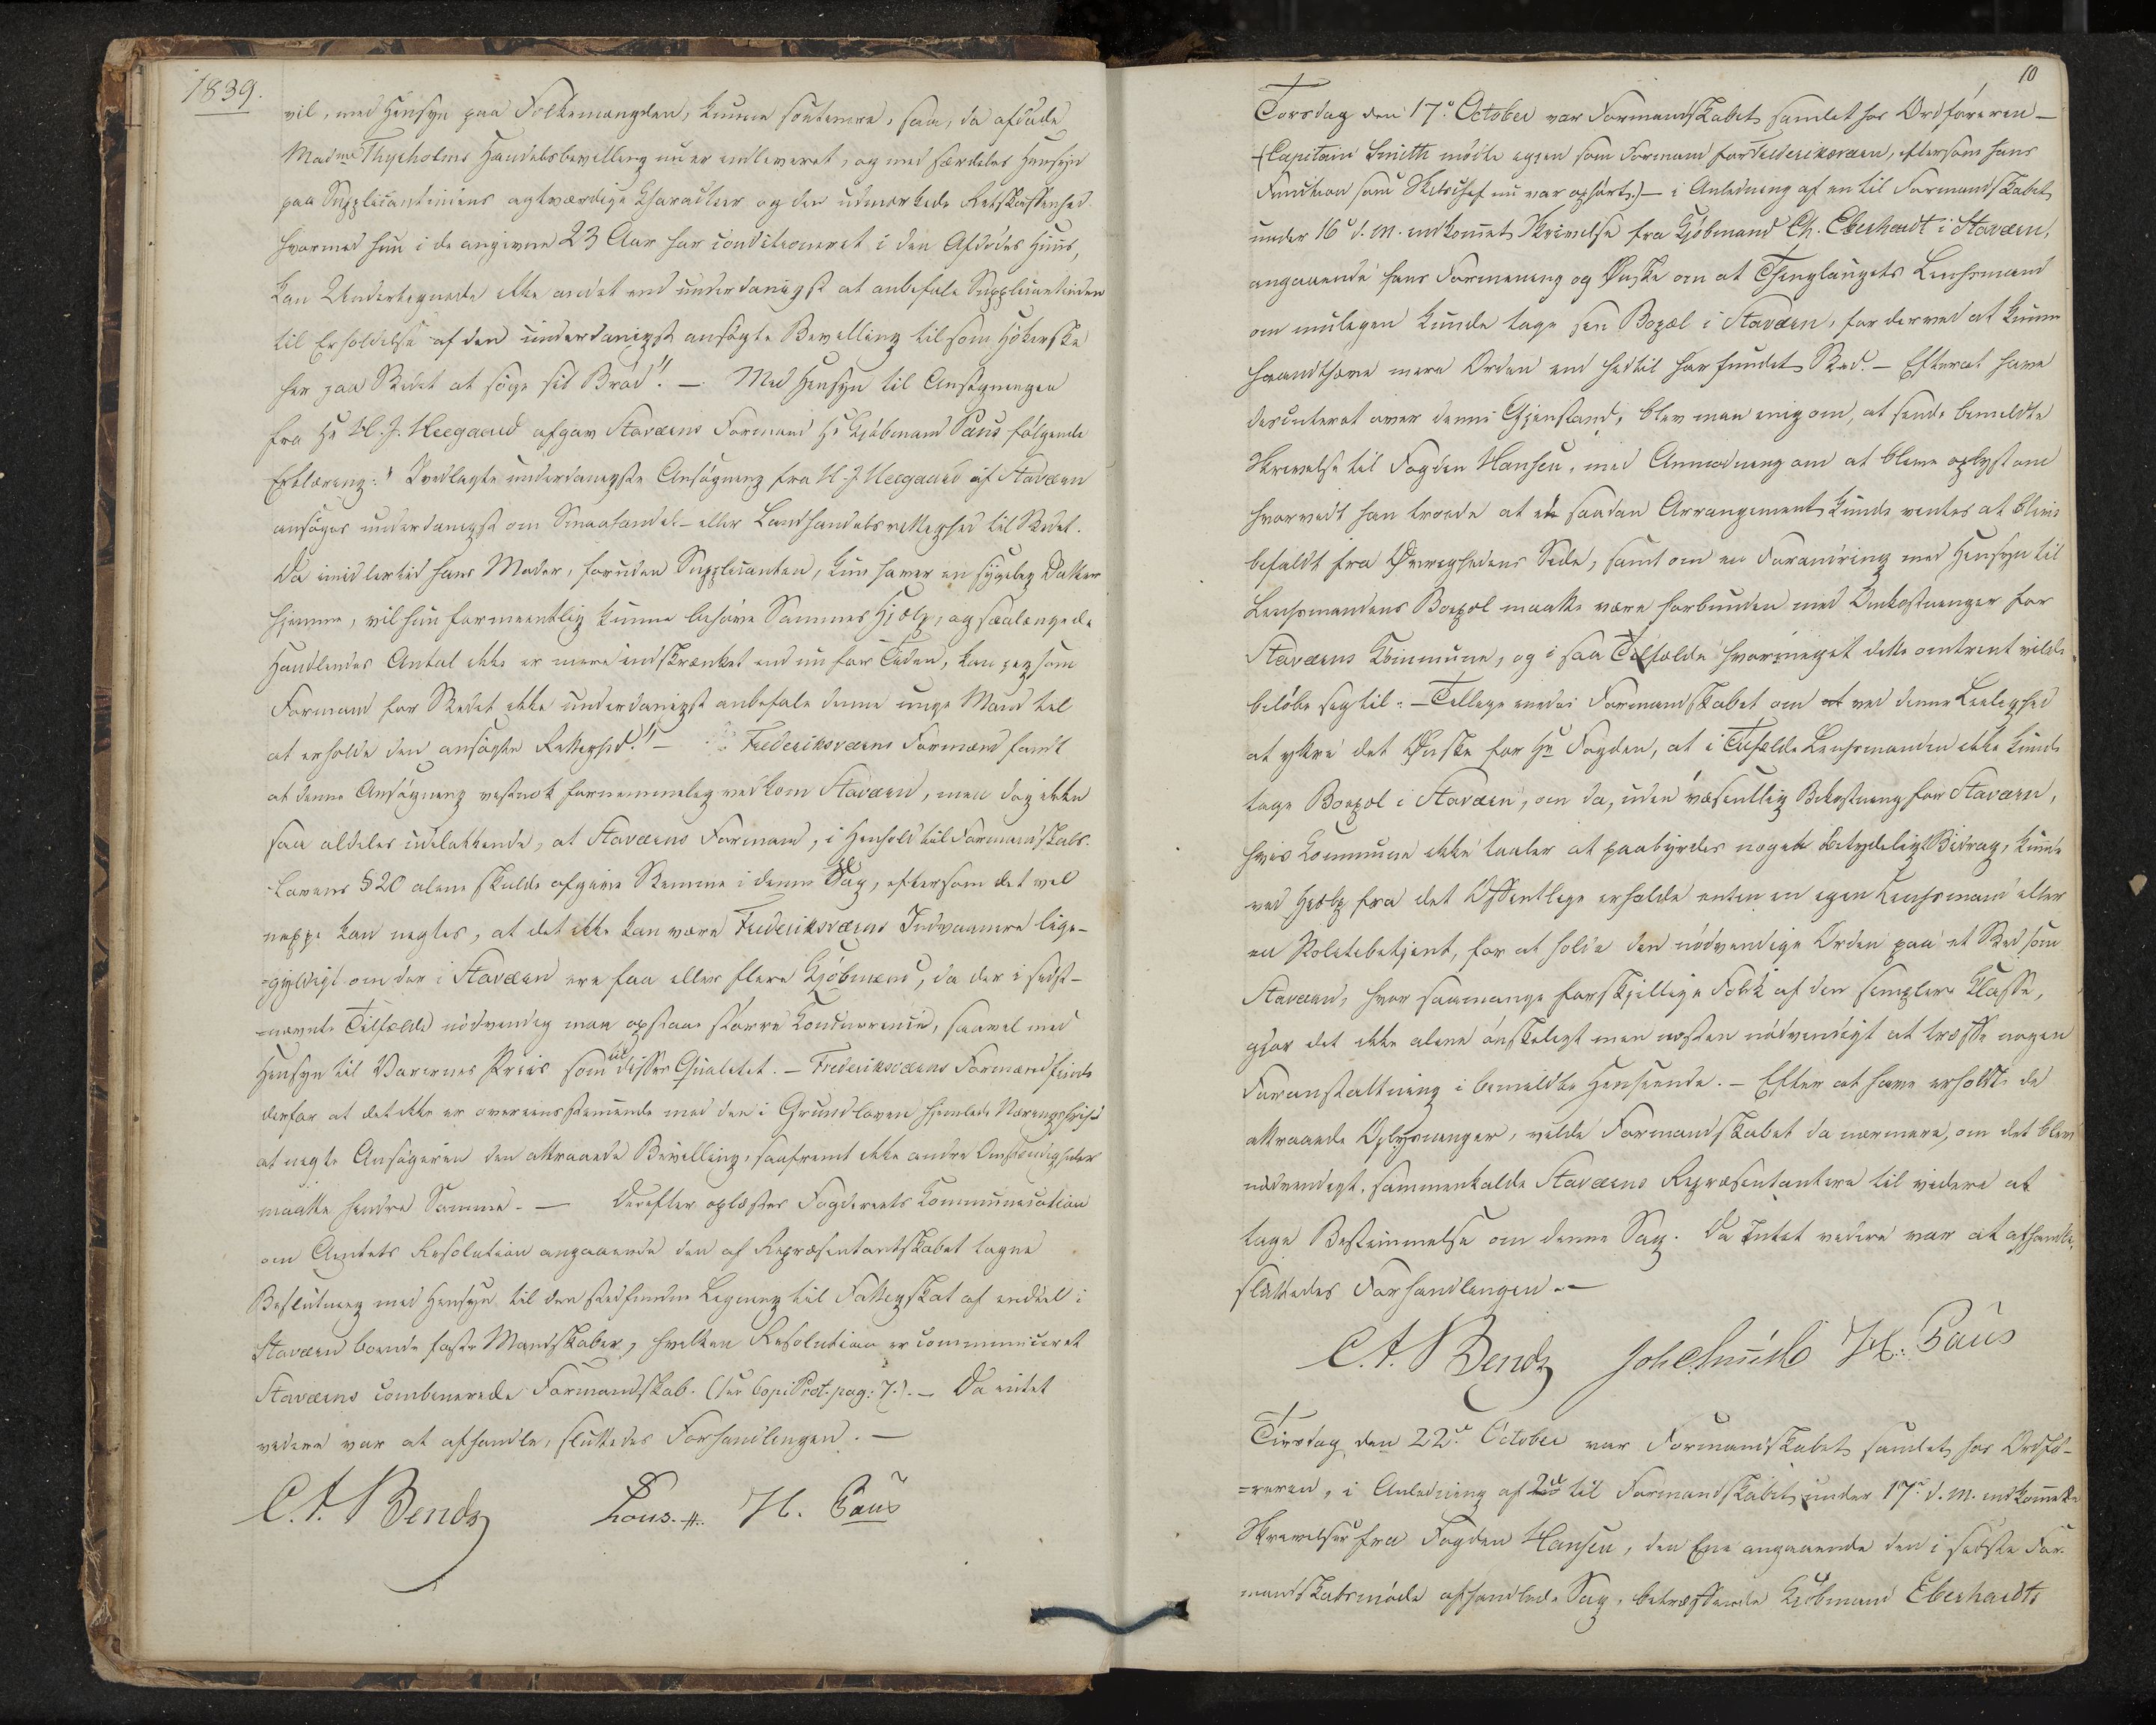 1839.
vil, med Hensyn paa Folkemængden, kunne soutenere, som, da afdøde
Madme Thycholms Handelsbevilling nu er indleveret, og med særdeles Hensyn
paa Supplicantindens agtværdige Charackteer og den udmærkede Retskaffenhed
hvormed hun i de angivne 23 Aar har conditioneret i den Afdødes Huus,
kan Undertegnede ikke andet end underdanigst at anbefale Supplicantinden
til Erholdelse af den underdanigst ansøgte Bevilling til som Høkerske
her paa Stedet at søge sit Brød". — Med Hensyn til Ansøgningen
fra Hr H. J. Heegaard afgav Staværns Formand Hr Kjøbmand Paus følgende
Erklæring: "Vedlagte underdanigste Ansøgning fra H. J. Heegaard af Staværn
ansøges underdanigst om Smaahandel- eller Landhandelsrettighed til Stedet.
Da imidlertid hans Moder, foruden Supplicanten, kun haver en sygelig Datter
hjemme, vil hun formeentlig kunne behøve Sammes Hjælp, og saalænge de
Handlendes Antal ikke er mere indskrænket end nu for Tiden, kan jeg som
Formand for Stedet ikke underdanigst anbefale denne unge Mand til
at erholde den ansøgte Rettighed." — Frederiksværns Formænd fandt
at denne Ansøgning vistnok fornemmelig vedkom Staværn, men dog ikke
saa aldeles udelukkende, at Staværns Formand, i Henhold til Formandskabs-
Lovens §20 alene skulde afgive Stemme i denne Sag, eftersom det vel
neppe kan negtes, at det ikke kan være Frederiksværns Indvaanere lige-
=gyldigt om der i Staværn ere faa eller flere Kjøbmænd, da der i sidst-
=nævnte Tilfælde nødvendig maa opstaae større Concurrence, saavel med
Hensyn til Varernes Priis som til disses Qualitet. — Frederiksværns Formænd finde
derfor at det ikke er overeensstemmende med den i Grundloven hjemlede Næringsfrihed
at negte Ansøgeren den attraaede Bevilling, saafremt ikke andre Omstændigheder
maatte hindre Samme. — Derefter oplæstes Fogderiets Kommunication
om Amtets Resolution angaaende den af Repræsentantskabet tagne
Beslutning med Hensyn til den stedfundne Ligning til Fattigskat af endeel i
Staværn boende faste Mandskaber, hvilken Resolution er communiceret
Staværns combinerede Formandskab. (see Copi Prot. pag: 7.) — Da intet
videre var at afhandle, sluttedes Forhandlingen. —
C. A. Bendz   Lous.   H. Paus
10
Torsdag den 17de October var Formandskabet samlet hos Ordføreren —
(Capitain Smith mødte igjen som Formand for Frederiksværn, eftersom hans
Function som Skibschef nu var ophørt.) — i Anledning af en til Formandskabet
under 16de d. M. indkommet Skrivelse fra Kjøbmand Ch. Eberhardt i Staværn,
angaaende hans Formening og Ønske om at Thinglaugets Lensmand
om muligen kunde tage sin Bopæl i Staværn, for derved at kunne
haandthæve mere Orden end hidtil har fundet Sted. — Efterat have
discuteret over denne Gjenstand, blev man enig om, at sende bemeldte
Skrivelse til Fogden Hansen, med Anmodning om at blive oplyst om
hvorvidt han troede at et saadan Arrangement kunde ventes at blive
befalet fra Øvrighedens Side, samt om en Forandring med Hensyn til
Lensmandens Bopæl maatte være forbunden med Omkostninger for
Staværns Kommune, og i saa Tilfælde hvormeget dette omtrent vilde
beløbe sig til. — Tillige enedes Formandskabet om at ved denne Leilighed
at yttre det Ønske for Hr Fogden, at i Tilfælde Lensmanden ikke kunde
tage Bopæl i Staværn, om da, uden væsentlig Bekostning for Staværn,
hvis Kommune ikke taaler at paabyrdes noget betydeligt Bidrag, kunde
ved Hjælp fra det Offentlige erholde enten en egen Lensmand eller
en Politibetjent, for at holde den nødvendige Orden paa et Sted som
Staværn, hvor saamange forskjellige Folk af den simplere Klasse,
gjør det ikke alene ønskeligt men næsten nødvendigt at træffe nogen
Foranstaltning i bemeldte Henseende. — Efter at have erholdt de
attraaede Oplysninger, vilde Formandskabet da nærmere, om det blev
nødvendigt, sammenkalde Staværns Repræsentantere til videre at
tage Bestemmelse om denne Sag. Da Intet videre var at afhandle,
sluttedes Forhandlingen. —
C. A. Bendz   Joh Smith   H. Paus
Tirsdag den 22de October var Formandskabet samlet hos Ordfø-
=reren, i Anledning af 2de til Formandskabet under 17de d. M. indkomne
Skrivelser fra Fogden Hansen, den Ene angaaende den i sidste For-
mandskabsmøde afhandlede Sag, betræffende Kjøbmand Eberhardts